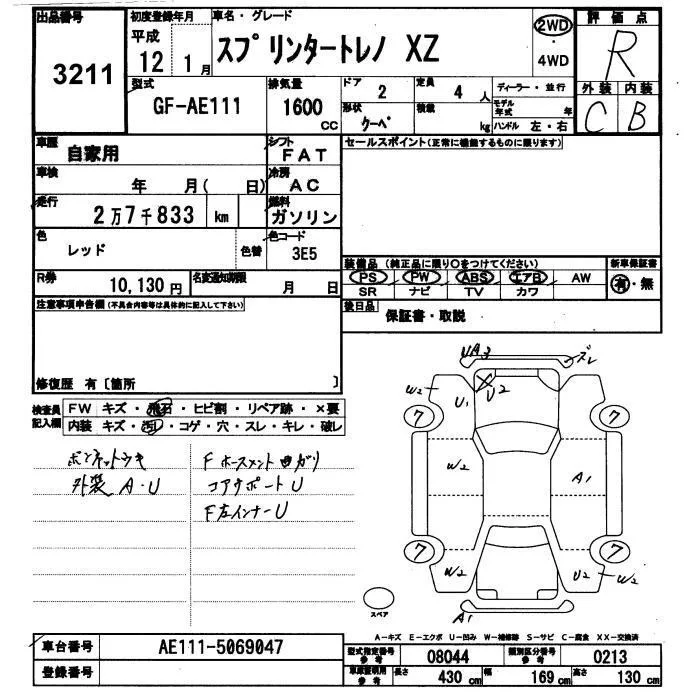 出品番号 初度登録年月 車名・グレード 評価点
3211
平成
12 1月
スプリンタートレノ XZ
2WD
・
4WD
R
型式 排気量 ドア 定員 ディーラー・並行 外装 内装
GF-AE111 1600 cc 2 4 人
モデル年式 年
形状 クーペ 積載 kg ハンドル 左・右
C B
車歴 自家用 シフト FAT
セールスポイント(正常に機能するものに限ります)
車検 年 月( 日) 冷房 AC
走行 2万7千833 km 燃料 ガソリン
色 レッド 色替 色コード 3E5
装備品(純正品に限り○をつけてください) 新車保証書
R券 10,130円 名変通知期限 月 日
PS PW ABS エアB AW 有・無
SR ナビ TV カワ
注意事項申告欄(不具合内容等は具体的に記入して下さい)
後日品 保証書・取説
修復歴 有〔箇所 〕
検査員記入欄
FW キズ・飛石・ヒビ割・リペア跡・×要
内装 キズ・汚レ・コゲ・穴・スレ・キレ・破レ
ボンネットウキ
外装 A・U
F ホースメント曲ガリ
コアサポートU
F左インナーU
UA3 ズレ
W2 U1 U2
7 7
W2 A1
7 7
W2 U2 W2
A1
スペア
A−キズ E−エクボ U−凹み W−補修跡 S−サビ C−腐食 XX−交換済
車台番号 AE111-5069047
型式指定番号 参考 08044 類別区分番号 参考 0213
登録番号
参考 長さ 430 cm 幅 169 cm 高さ 130 cm